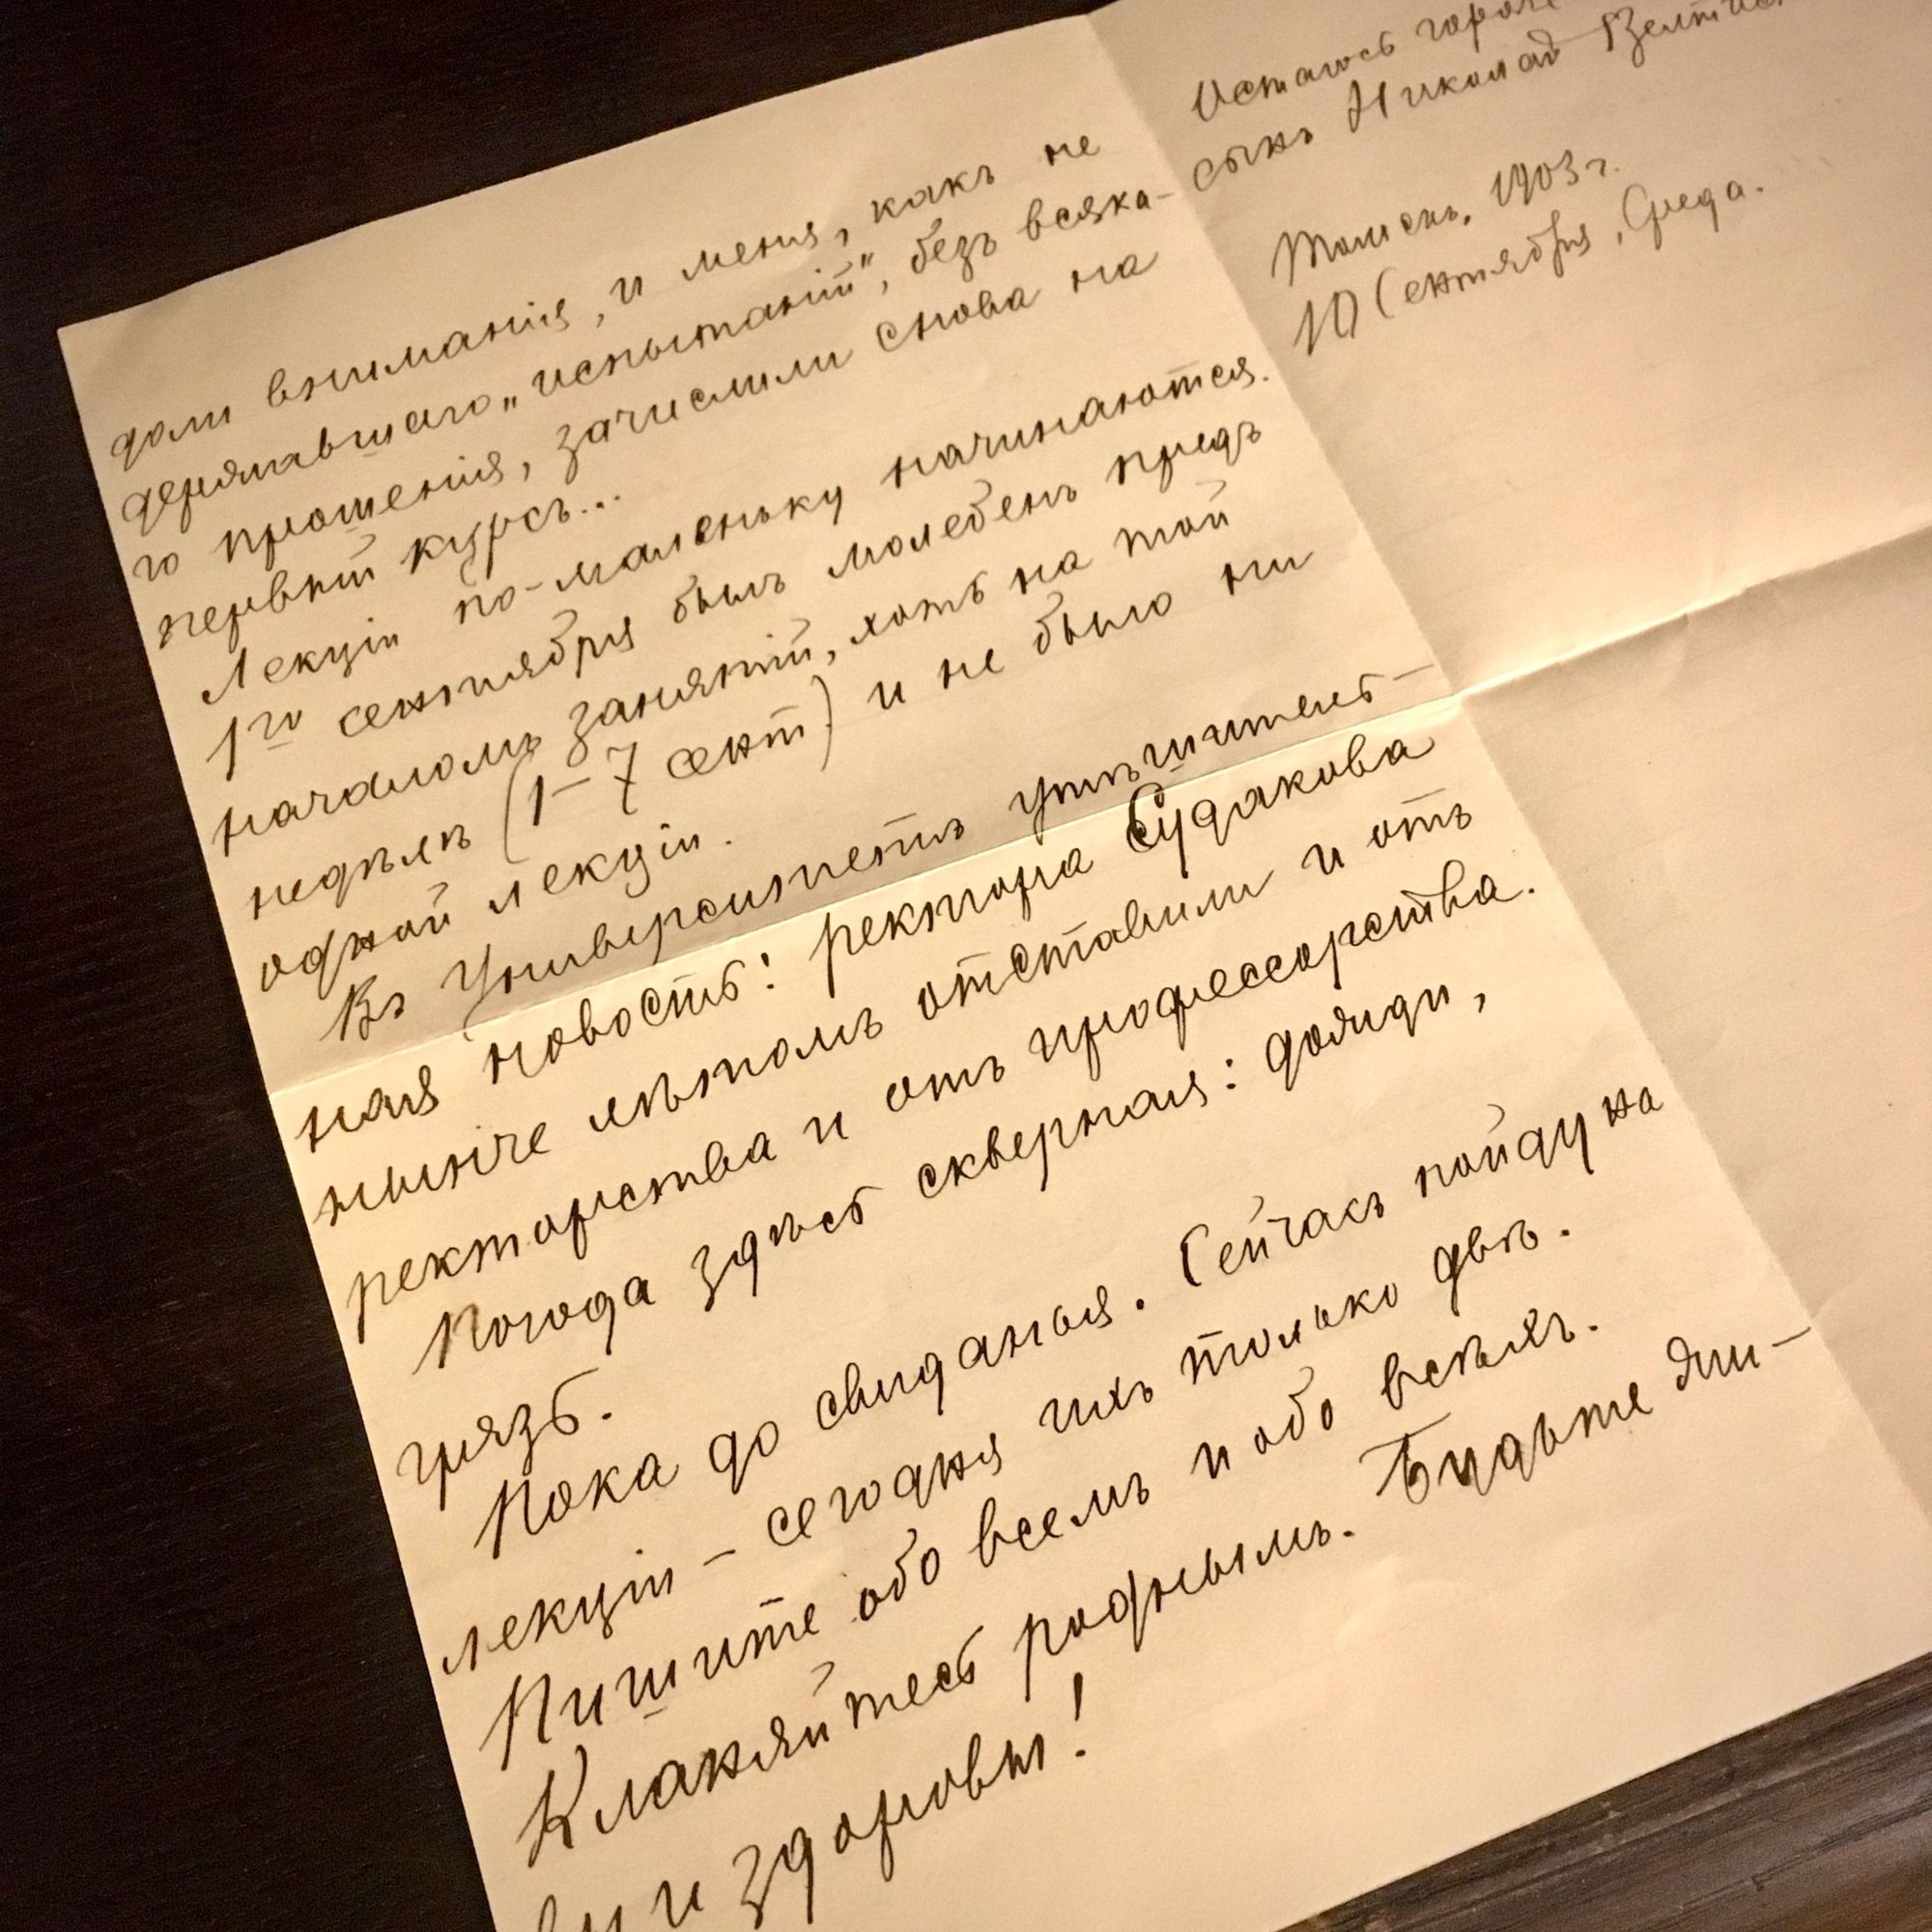 дали вниманія, и меня, какъ не
державшаго „испытаній", безъ всяка-
го прошенія, зачислили снова на
первый курсъ...
Лекціи по-маленьку начинаются.
1го сентября былъ молебенъ предъ
началомъ занятій, хоть на той
недѣлѣ (1–7 сент) и не было ни
одной лекціи.
Въ Университетѣ утѣшитель-
ная новость: ректора Судакова
нынче лѣтомъ отставили и отъ
ректорства и отъ профессорства.
Погода здѣсь скверная: дожди,
грязь.
Пока до свиданья. Сейчасъ пойду на
лекціи – сегодня ихъ только двѣ.
Пишите обо всемъ и обо всѣхъ.
Кланяйтесь роднымъ. Будьте жи-
вы и здоровы!
Остаюсь
сынъ Николай
Томскъ, 1903 г.
10 Сентября, Среда.